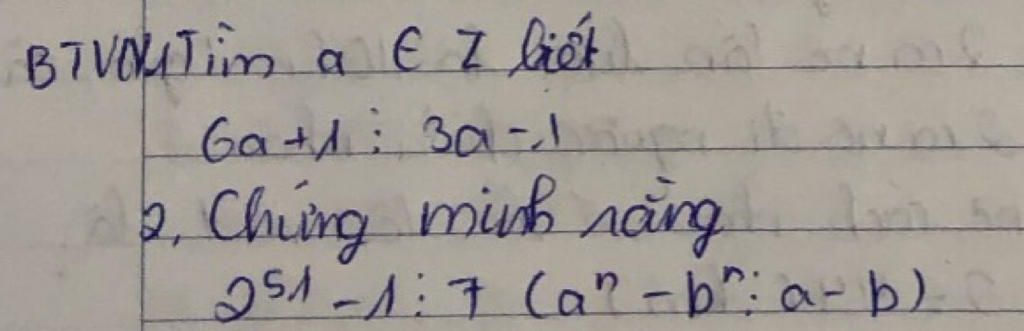 BTVN Tìm a ∈ Z biết
6a+1 ⋮ 3a-1
2, Chứng minh rằng
2⁵¹ - 1 ⋮ 7 (aⁿ - bⁿ ⋮ a - b)